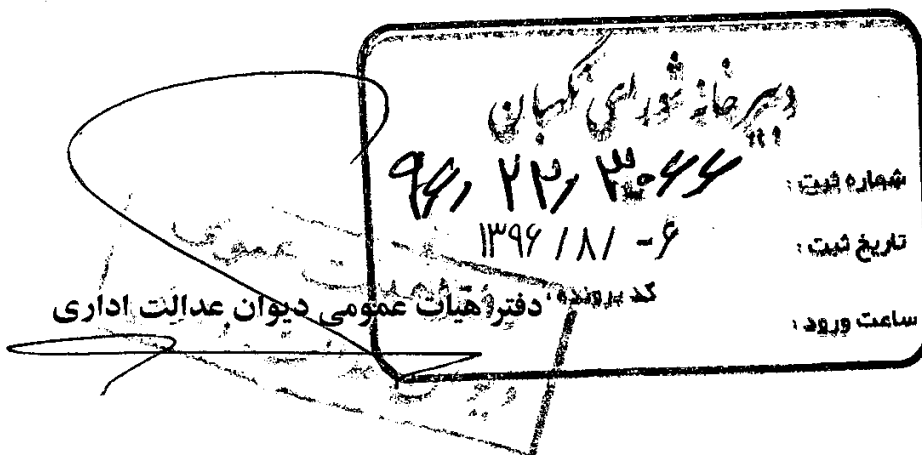 دبیرخانه شورای نگهبان
شماره ثبت : ۹۶/۲۲/۳۰۶۶
تاریخ ثبت : ۱۳۹۶/۸/-۶
کد پرونده :
ساعت ورود :
دفتر هیات عمومی دیوان عدالت اداری